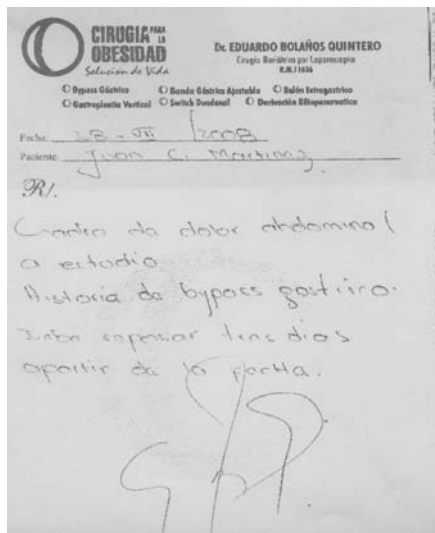 CIRUGIA PARA LA
OBESIDAD
Solución de Vida
Dr. EDUARDO BOLAÑOS QUINTERO
Cirugía Bariátrica por Laparoscopia
R.M. 11636
O Bypass Gástrico O Banda Gástrica Ajustable O Balón Intragástrico
O Gastroplastia Vertical O Switch Duodenal O Derivación Biliopancreatica
Fecha: 28 - VII / 2008
Paciente: Juan C. Martinez
R/.
Cuadro de dolor abdominal
a estudio
Historia de bypass gastrico.
Debe reposar tres dias
apartir de la fecha.